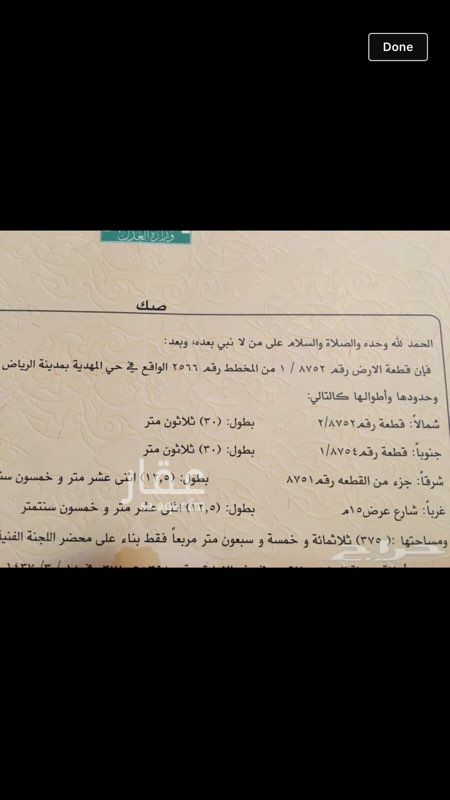 Done
وزارة العدل
صك
الحمد لله وحده والصلاة والسلام على من لا نبي بعده، وبعد:
فإن قطعة الارض رقم ٨٧٥٢ / ١ من المخطط رقم ٢٥٦٦ الواقع في حي المهدية بمدينة الرياض
وحدودها وأطوالها كالتالي:
شمالاً: قطعة رقم ٢/٨٧٥٢ بطول: (٣٠) ثلاثون متر
جنوباً: قطعة رقم ١/٨٧٥٤ بطول: (٣٠) ثلاثون متر
شرقاً: جزء من القطعه رقم ٨٧٥١ بطول: (١٢,٥) اثنى عشر متر و خمسون سنت
عقار
غرباً: شارع عرض ١٥م بطول: (١٢,٥) اثنى عشر متر و خمسون سنتمتر
ومساحتها :( ٣٧٥) ثلاثمائة و خمسة و سبعون متر مربعاً فقط بناء على محضر اللجنة الفنية
حراج
١٤٣٧ /٣ /١٨